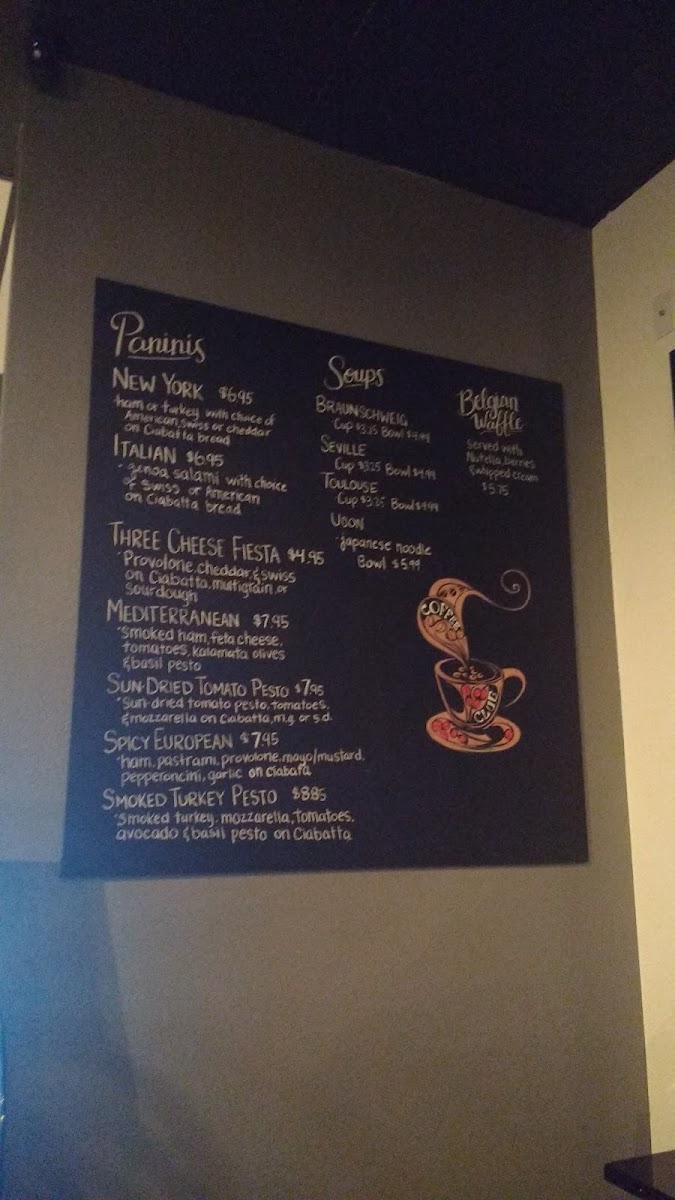 Paninis
NEW YORK $6.95
ham or turkey with choice of
American, swiss or cheddar
on Ciabatta bread
ITALIAN $6.95
·genoa salami with choice
of swiss or American
on Ciabatta bread
THREE CHEESE FIESTA $4.95
·Provolone, cheddar, & swiss
on Ciabatta, multigrain, or
sourdough
MEDITERRANEAN $7.95
·Smoked ham, feta cheese,
tomatoes, kalamata olives
& basil pesto
SUN-DRIED TOMATO PESTO $7.95
·Sun-dried tomato pesto, tomatoes,
& mozzarella on Ciabatta, m.g. or s.d.
SPICY EUROPEAN $7.95
·ham, pastrami, provolone, mayo/mustard,
pepperoncini, garlic on ciabata
SMOKED TURKEY PESTO $8.85
·Smoked turkey, mozzarella, tomatoes,
avocado & basil pesto on Ciabatta
Soups
BRAUNSCHWEIG
Cup $3.25 Bowl $4.99
SEVILLE
Cup $3.25 Bowl $4.99
TOULOUSE
Cup $3.25 Bowl $4.99
UDON
·japanese noodle
Bowl $5.99
Belgian
Waffle
served with
Nutella, berries
& whipped cream
$5.75
COFFEE
CLUB